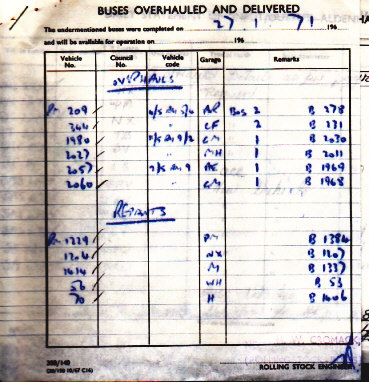 BUSES OVERHAULED AND DELIVERED
The undermentioned buses were completed on 27 1 71 196
and will be available for operation on 196
Vehicle No. Council No. Vehicle code Garage Remarks
OVERHAULS
209 AR Bos 2 B 278
344 " CF 2 B 271
1980 9/2 CM 1 B 2030
2027 " MH 1 B 2011
2057 9 AE 1 B 1969
2060 " CM 1 B 1968
REPAINTS
1229 PM B 1384
1204 NX B 1207
1414 M B 1337
56 WH B 53
70 H B 1006
ROLLING STOCK ENGINEER